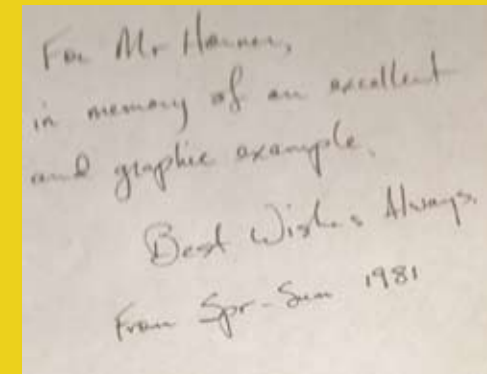 For Mr
in memory of an excellent
and graphic example.
Best Wishes Always.
From Spr-Sum 1981